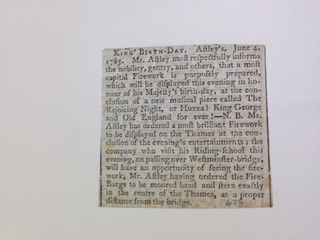 KING'S BIRTH-DAY. Astley's, June 4.
1785. Mr. Astley most respectfully informs
the nobility, gentry, and others, that a most
capital Firework is purposely prepared,
which will be displayed this evening in ho-
nour of his Majesty's birth-day, at the con-
clusion of a new musical piece called The
Rejoicing Night, or Huzza! King George
and Old England for ever!—N. B. Mr.
Astley has ordered a most brilliant Firework
to be displayed on the Thames at the con-
clusion of the evening's entertainments; the
company who visit his Riding-school this
evening, on passing over Westminster-bridge,
will have an opportunity of seeing the fire-
work, Mr. Astley having ordered the Fire-
Barge to be moored head and stern exactly
in the centre of the Thames, at a proper
distance from the bridge.